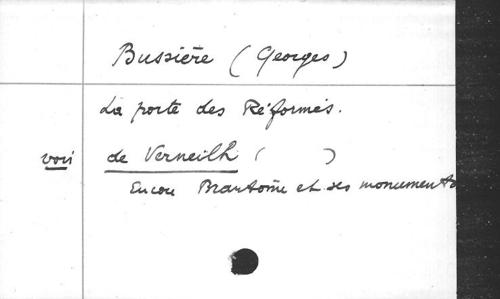 Bussière (Georges)
La porte des Réformés.
voir de Verneilh ( )
Encore Brantôme et ses monuments